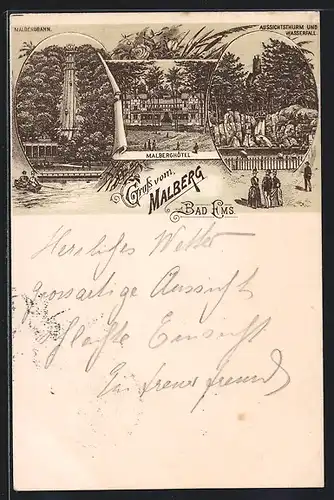 MALBERGBAHN.
AUSSICHTSTHURM UND
WASSERFALL.
MALBERGHÔTEL
Gruß vom
MALBERG
BAD EMS.
Herrliches Wetter
grossartige Aussicht
Einsicht
Ein treuer Freund